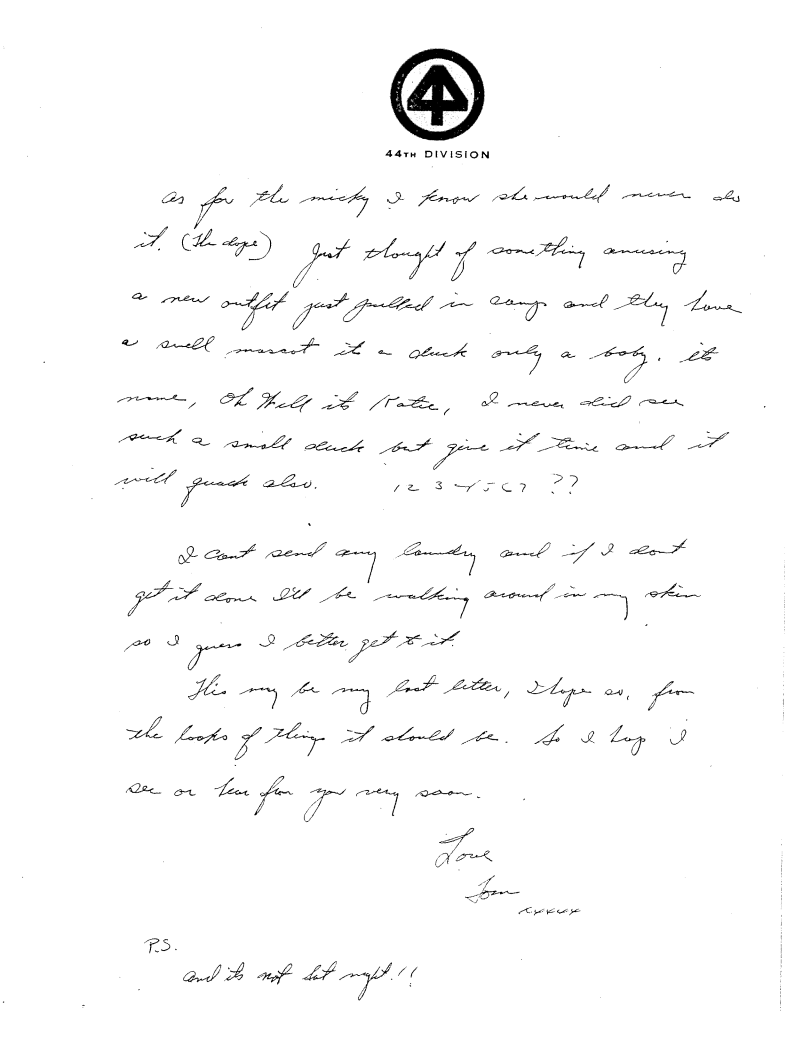 44TH DIVISION
as for the micky I know she would never do
it. (The dope) Just thought of something amusing
a new outfit just pulled in camp and they have
a swell mascot its a duck only a baby. its
name, Oh Well its Katie, I never did see
such a small duck but give it time and it
will quack also. 1234567 ??
I cant send any laundry and if I dont
get it done I'll be walking around in my skin
so I guess I better get to it.
This my be my last letter, I hope so, from
the looks of things it should be. So I hop I
see or hear from you very soon.
Love
Tom
xxxxx
P.S.
and its not Sat night.!!